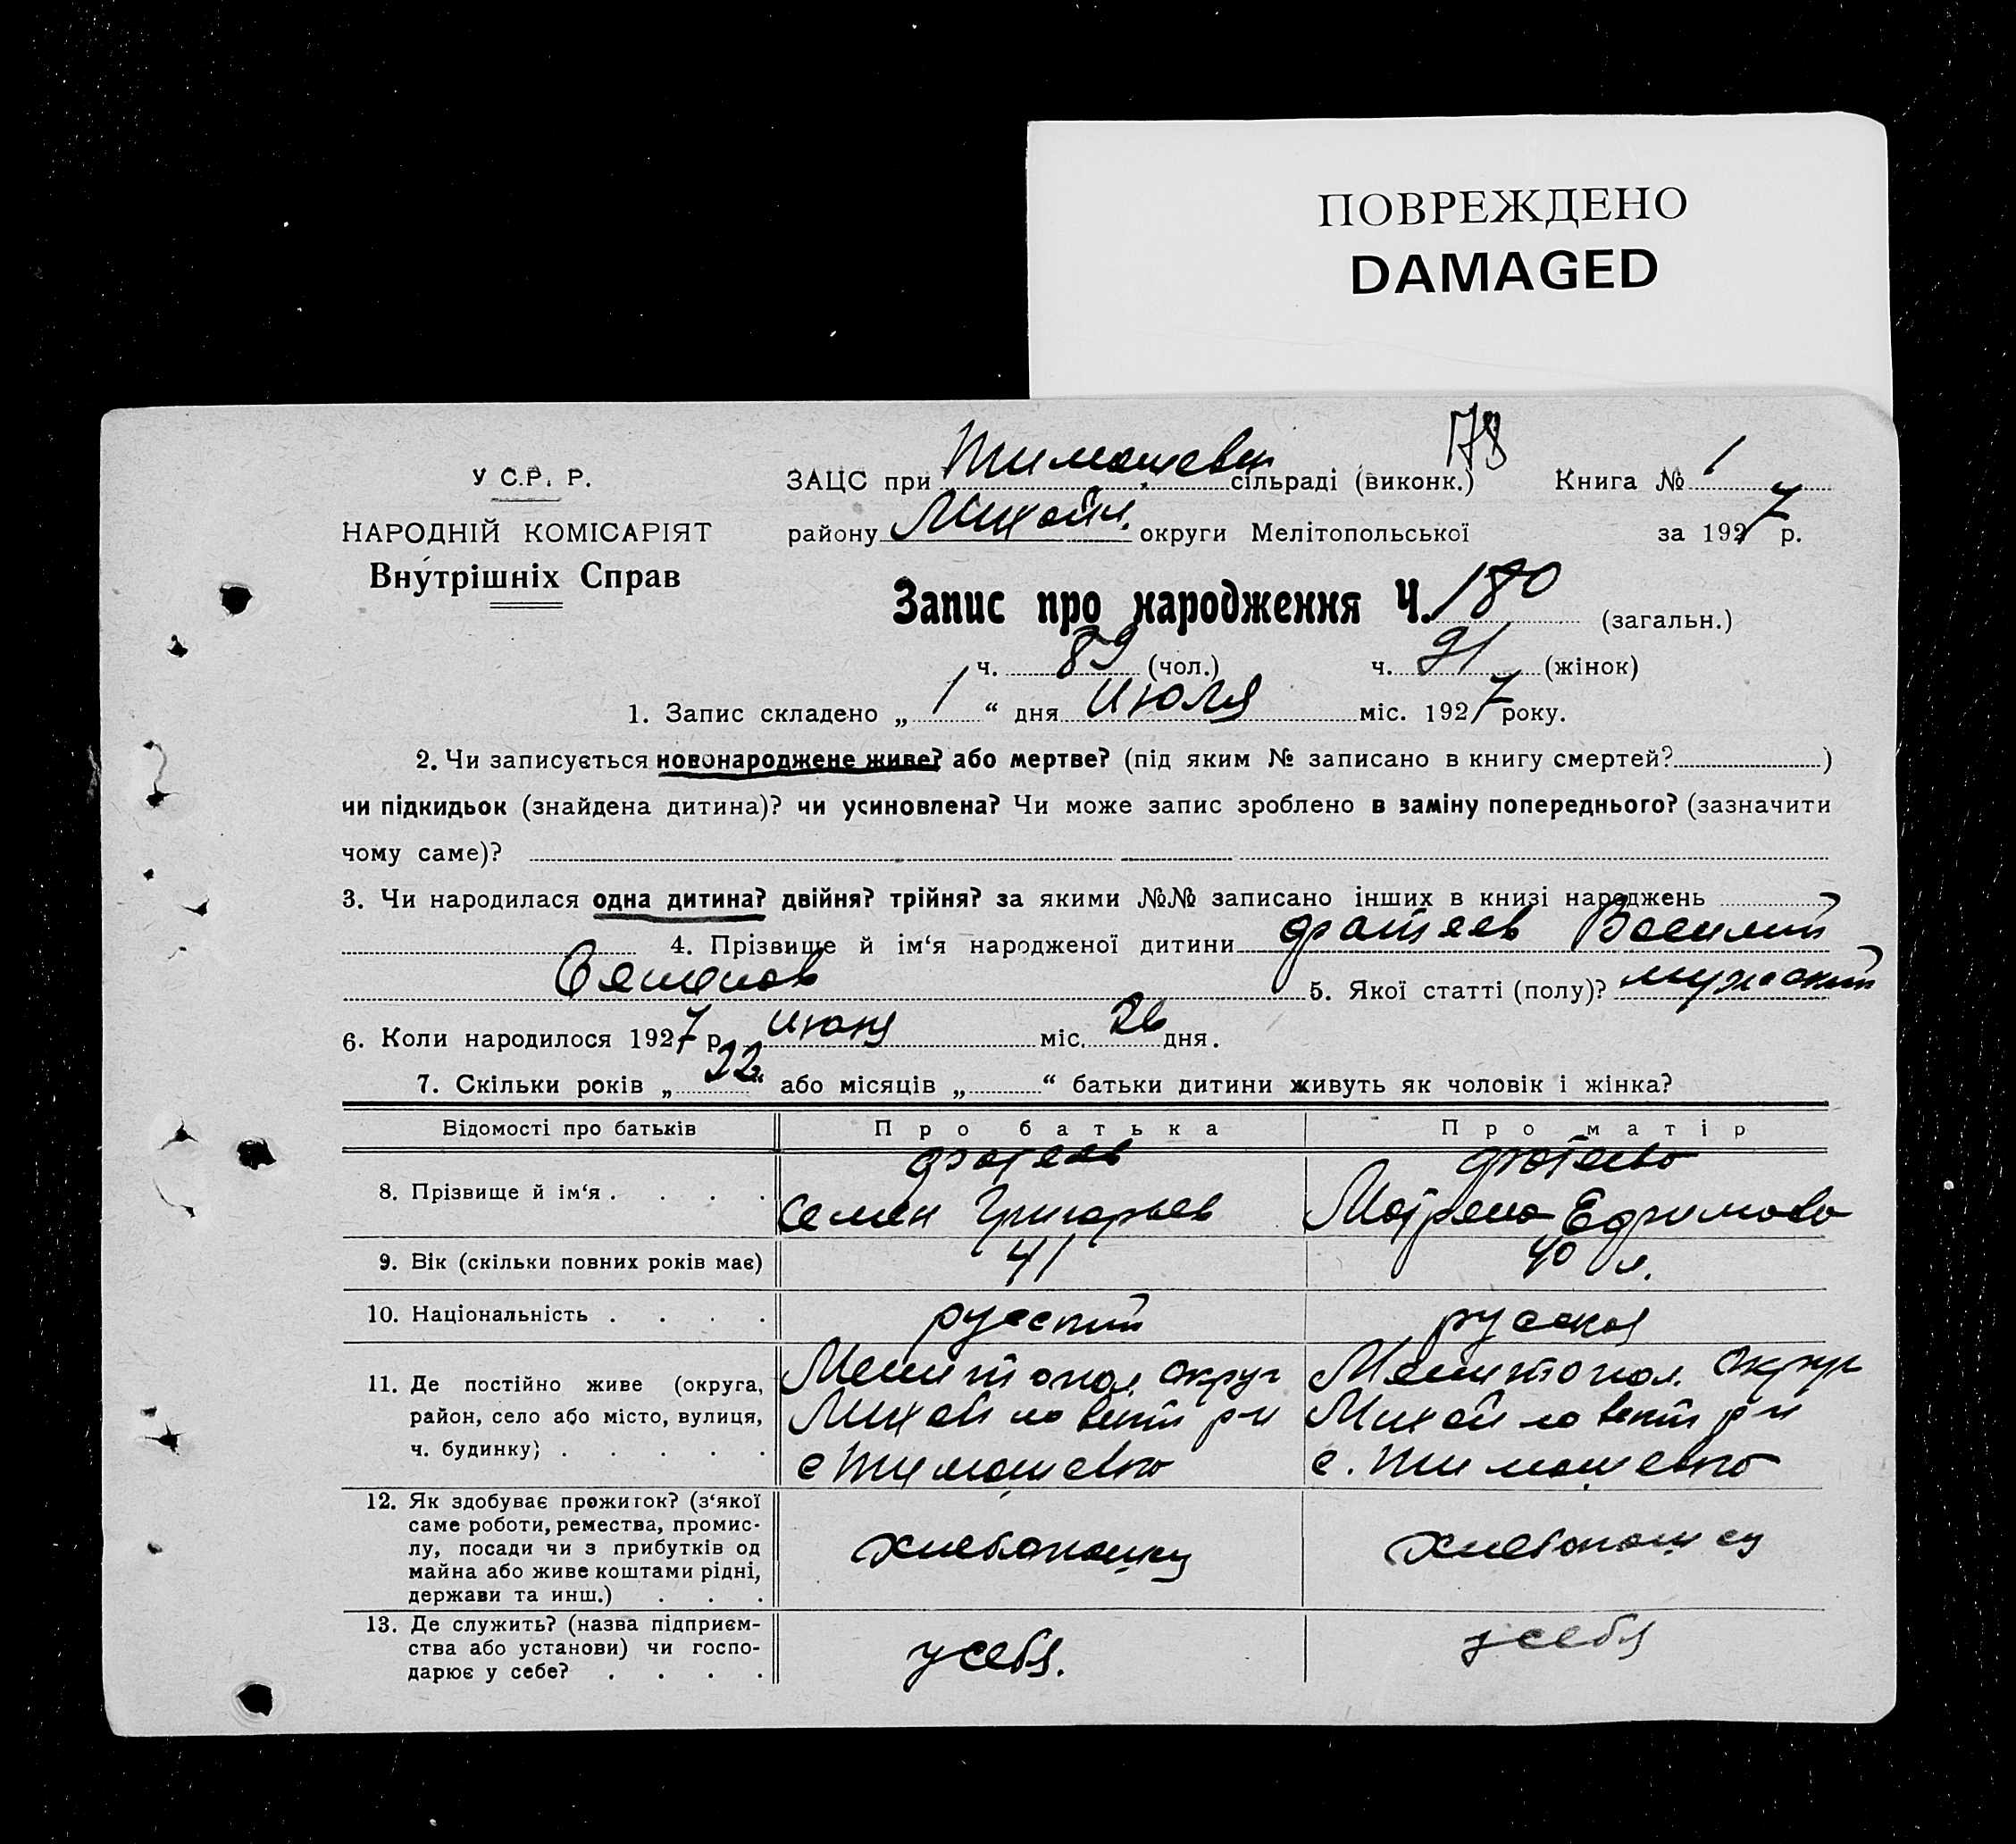 ПОВРЕЖДЕНО
DAMAGED
178
У С.Р. Р.
НАРОДНІЙ КОМІСАРІЯТ
Внутрішніх Справ
ЗАЦС при Тимошевск сільраді (виконк.) Книга № 1
району Михайл. округи Мелітопольської за 1927 р.
Запис про народження Ч. 180 (загальн.)
ч. 89 (чол.) ч. 91 (жінок)
1. Запис складено „ 1 “ дня Июля міс. 1927 року.
2. Чи записується новонароджене живе? або мертве? (під яким № записано в книгу смертей? )
чи підкидьок (знайдена дитина)? чи усиновлена? Чи може запис зроблено в заміну попереднього? (зазначити
чому саме)?
3. Чи народилася одна дитина? двійня? трійня? за якими №№ записано інших в книзі народжень
4. Прізвище й ім‘я народженої дитини Фатеев Василий
Семенов 5. Якої статті (полу)? мужской
6. Коли народилося 1927 р. Июня міс. 26 дня.
7. Скільки років „ 22 “ або місяців „ “ батьки дитини живуть як чоловік і жінка?
Відомості про батьків Про батька Про матір
8. Прізвище й ім‘я . . . . Фатеев Семен Григорьев Фатеева Матрена Ефимова
9. Вік (скільки повних років має) 41 40 л.
10. Національність . . . . русский русская
11. Де постійно живе (округа, Мелитопол. округ Мелитопол. округ
район, село або місто, вулиця, Михайловский р-н Михайловский р-н
ч. будинку) . . . . . с Тимошевка с. Тимошевка
12. Як здобуває прожиток? (з‘якої
саме роботи, ремества, промис-
лу, посади чи з прибутків од хлебопашец хлебопашец
майна або живе коштами рідні,
держави та инш.) . . .
13. Де служить? (назва підприєм-
ства або установи) чи госпо- у себя. у себя
дарює у себе? . . . .